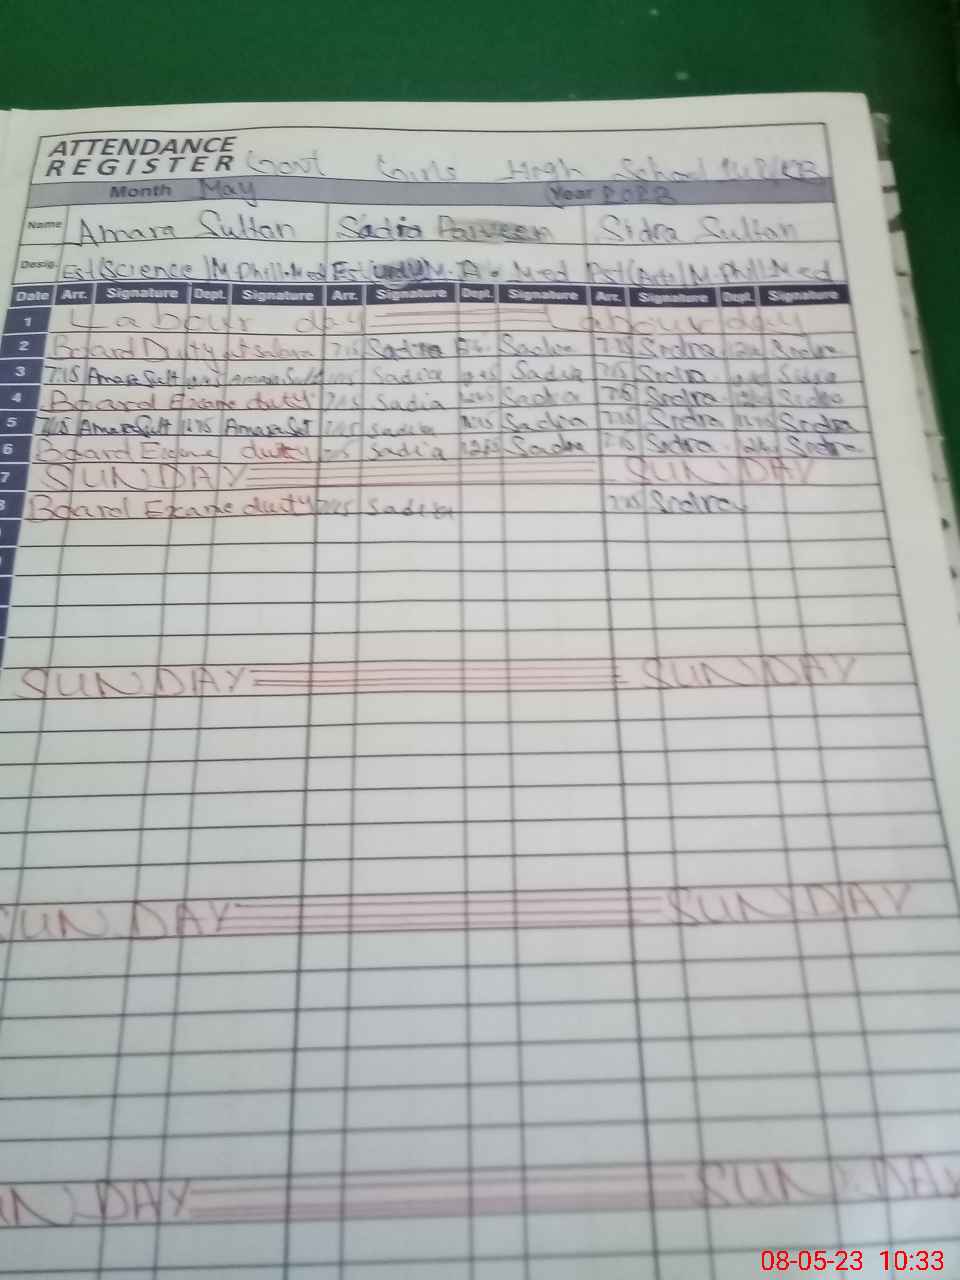 ATTENDANCE
REGISTER Govt Girls High School
Month May Year 2023
Name Amara Sultan Sadia Parveen Sidra Sultan
Desig. Est(Science)M.Phill.Med Est(urdu)M.A. Med Est(Arts)M.Phill.Med
Date Arr. Signature Dept. Signature Arr. Signature Dept. Signature Arr. Signature Dept. Signature
1 Labour day Labour day
2 Board Duty at 7:15 Sadia Sadia 7:15 Sidra Sidra
3 7:15 Amara Sult Amara Sult Sadia Sadia 7:15 Sidra Sidra
4 Board Exame duty 7:15 Sadia Sadia 7:15 Sidra Sidra
5 7:15 Amara Sult Amara Sult 7:15 Sadia Sadia 7:15 Sidra Sidra
6 Board Exame duty 7:15 Sadia Sadia 7:15 Sidra Sidra
7 SUNDAY SUNDAY
8 Board Exame duty 7:15 Sadia 7:15 Sidra
SUNDAY SUNDAY
SUNDAY SUNDAY
UN DAY SUNDAY
08-05-23 10:33